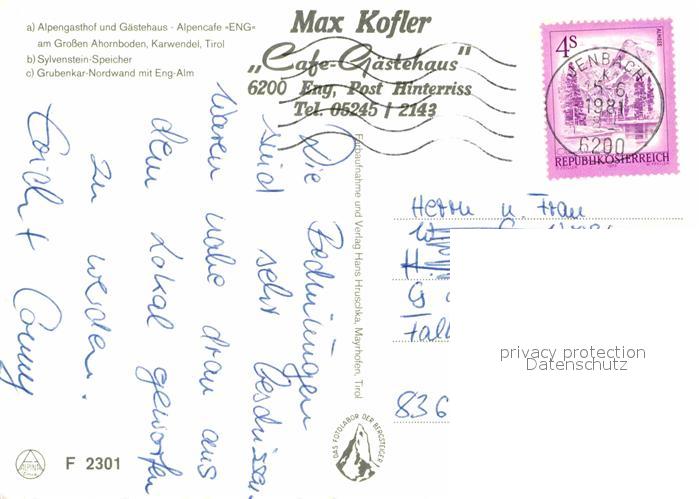 a) Alpengasthof und Gästehaus - Alpencafe »ENG«
am Großen Ahornboden, Karwendel, Tirol
b) Sylvenstein-Speicher
c) Grubenkar-Nordwand mit Eng-Alm
Max Kofler
„Cafe-Gästehaus"
6200 Eng, Post Hinterriss
Tel. 05245 / 2143
4S
ALMSEE
JENBACH
15-6
1981
6200
REPUBLIK ÖSTERREICH
Die Bedinungen
sind sehr beschissen.
Waren nahe dran aus
dem Lokal geworfen
zu werden.
Conny
Farbaufnahme und Verlag Hans Hruschka, Mayrhofen, Tirol
Herrn u. Frau
Fall
836
privacy protection
Datenschutz
DAS FOTOLABOR DER BERGSTEIGER
ALPINA
F 2301